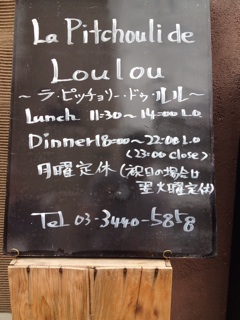 La Pitchouli de
Loulou
～ラ・ピッチョリー・ドゥ・ルル～
Lunch 11:30～14:00 L.O
Dinner 18:00～22:00 L.O
(23:00 close)
月曜定休(祝日の場合は
翌火曜定休)
Tel 03-3440-5858